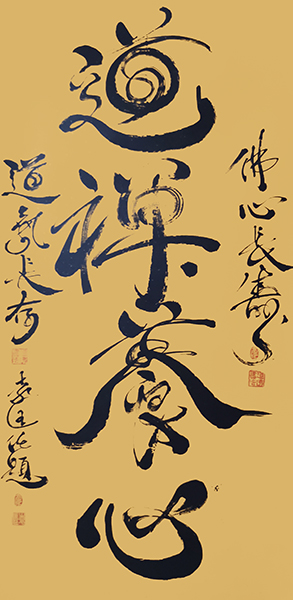 佛心長壽
道禪養心
道氣長存
題